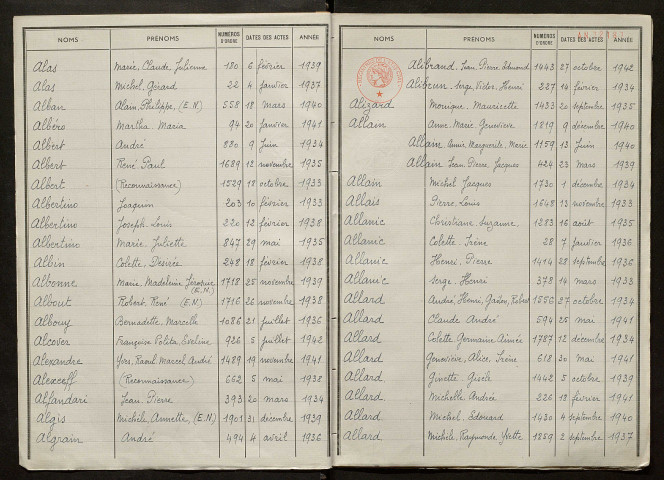 NOMS PRÉNOMS NUMÉROS D'ORDRE DATES DES ACTES ANNÉE
Alas Marie, Claude Julienne 180 6 février 1939
Alas Michel, Gérard 22 4 janvier 1937
Alban Alain, Philippe, (E.N) 558 18 mars 1940
Albéro Martha, Maria 94 20 janvier 1941
Albert André 830 9 juin 1934
Albert René Paul 1689 12 novembre 1935
Albert (Reconnaissance) 1529 18 octobre 1933
Albertino Joaquin 203 10 février 1933
Albertino Joseph, Louis 220 12 février 1938
Albertino Marie, Juliette 847 29 mai 1935
Albin Colette, Désirée 248 18 février 1938
Albonne Marie, Madeleine Jéromine (E.N.) 1718 25 novembre 1939
Albout Robert, René (E.N) 1716 26 novembre 1938
Albouy Bernadette, Marcelle 1086 21 juillet 1936
Alcover Françoise Eveline 926 5 juillet 1942
Alexandre Yves, Raoul Marcel André 1489 19 novembre 1941
Alexeeff (Reconnaissance) 662 5 mai 1938
Alfandari Jean, Pierre 393 20 mars 1934
Algis Michèle, Annette, (E.N.) 1901 31 décembre 1939
Algrain André 494 4 avril 1936
NOMS PRÉNOMS NUMÉROS D'ORDRE DATES DES ACTES ANNÉE
Alibrand Jean, Pierre Edmond 1443 27 octobre 1942
Alibrun Serge, Victor, Henri 227 14 février 1934
Alizard Monique, Mauricette 1433 20 septembre 1935
Allain Anne, Marie Geneviève 1819 9 décembre 1940
Allain Annie, Marguerite, Marie 1159 13 juin 1940
Allain Jean, Pierre, Jacques 424 23 mars 1939
Allain Michel Jacques 1730 1 décembre 1934
Allais Pierre, Louis 1648 13 novembre 1933
Allanic Christiane, Suzanne 1283 16 août 1935
Allanic Colette, Irène 28 7 janvier 1936
Allanic Henri, Pierre 1414 28 septembre 1936
Allanic Serge, Henri 378 14 mars 1933
Allard André, Henri, Gaston, Robert 1556 27 octobre 1934
Allard Claude André 594 25 mai 1941
Allard Colette Germaine Aimée 1787 12 décembre 1934
Allard Geneviève, Alice, Irène 618 30 mai 1941
Allard Ginette, Gisèle 1442 5 octobre 1939
Allard Michelle, Andrée 226 18 février 1941
Allard Michel, Edouard 1430 4 septembre 1940
Allard Michèle, Raymonde, Yvette 1859 2 septembre 1937